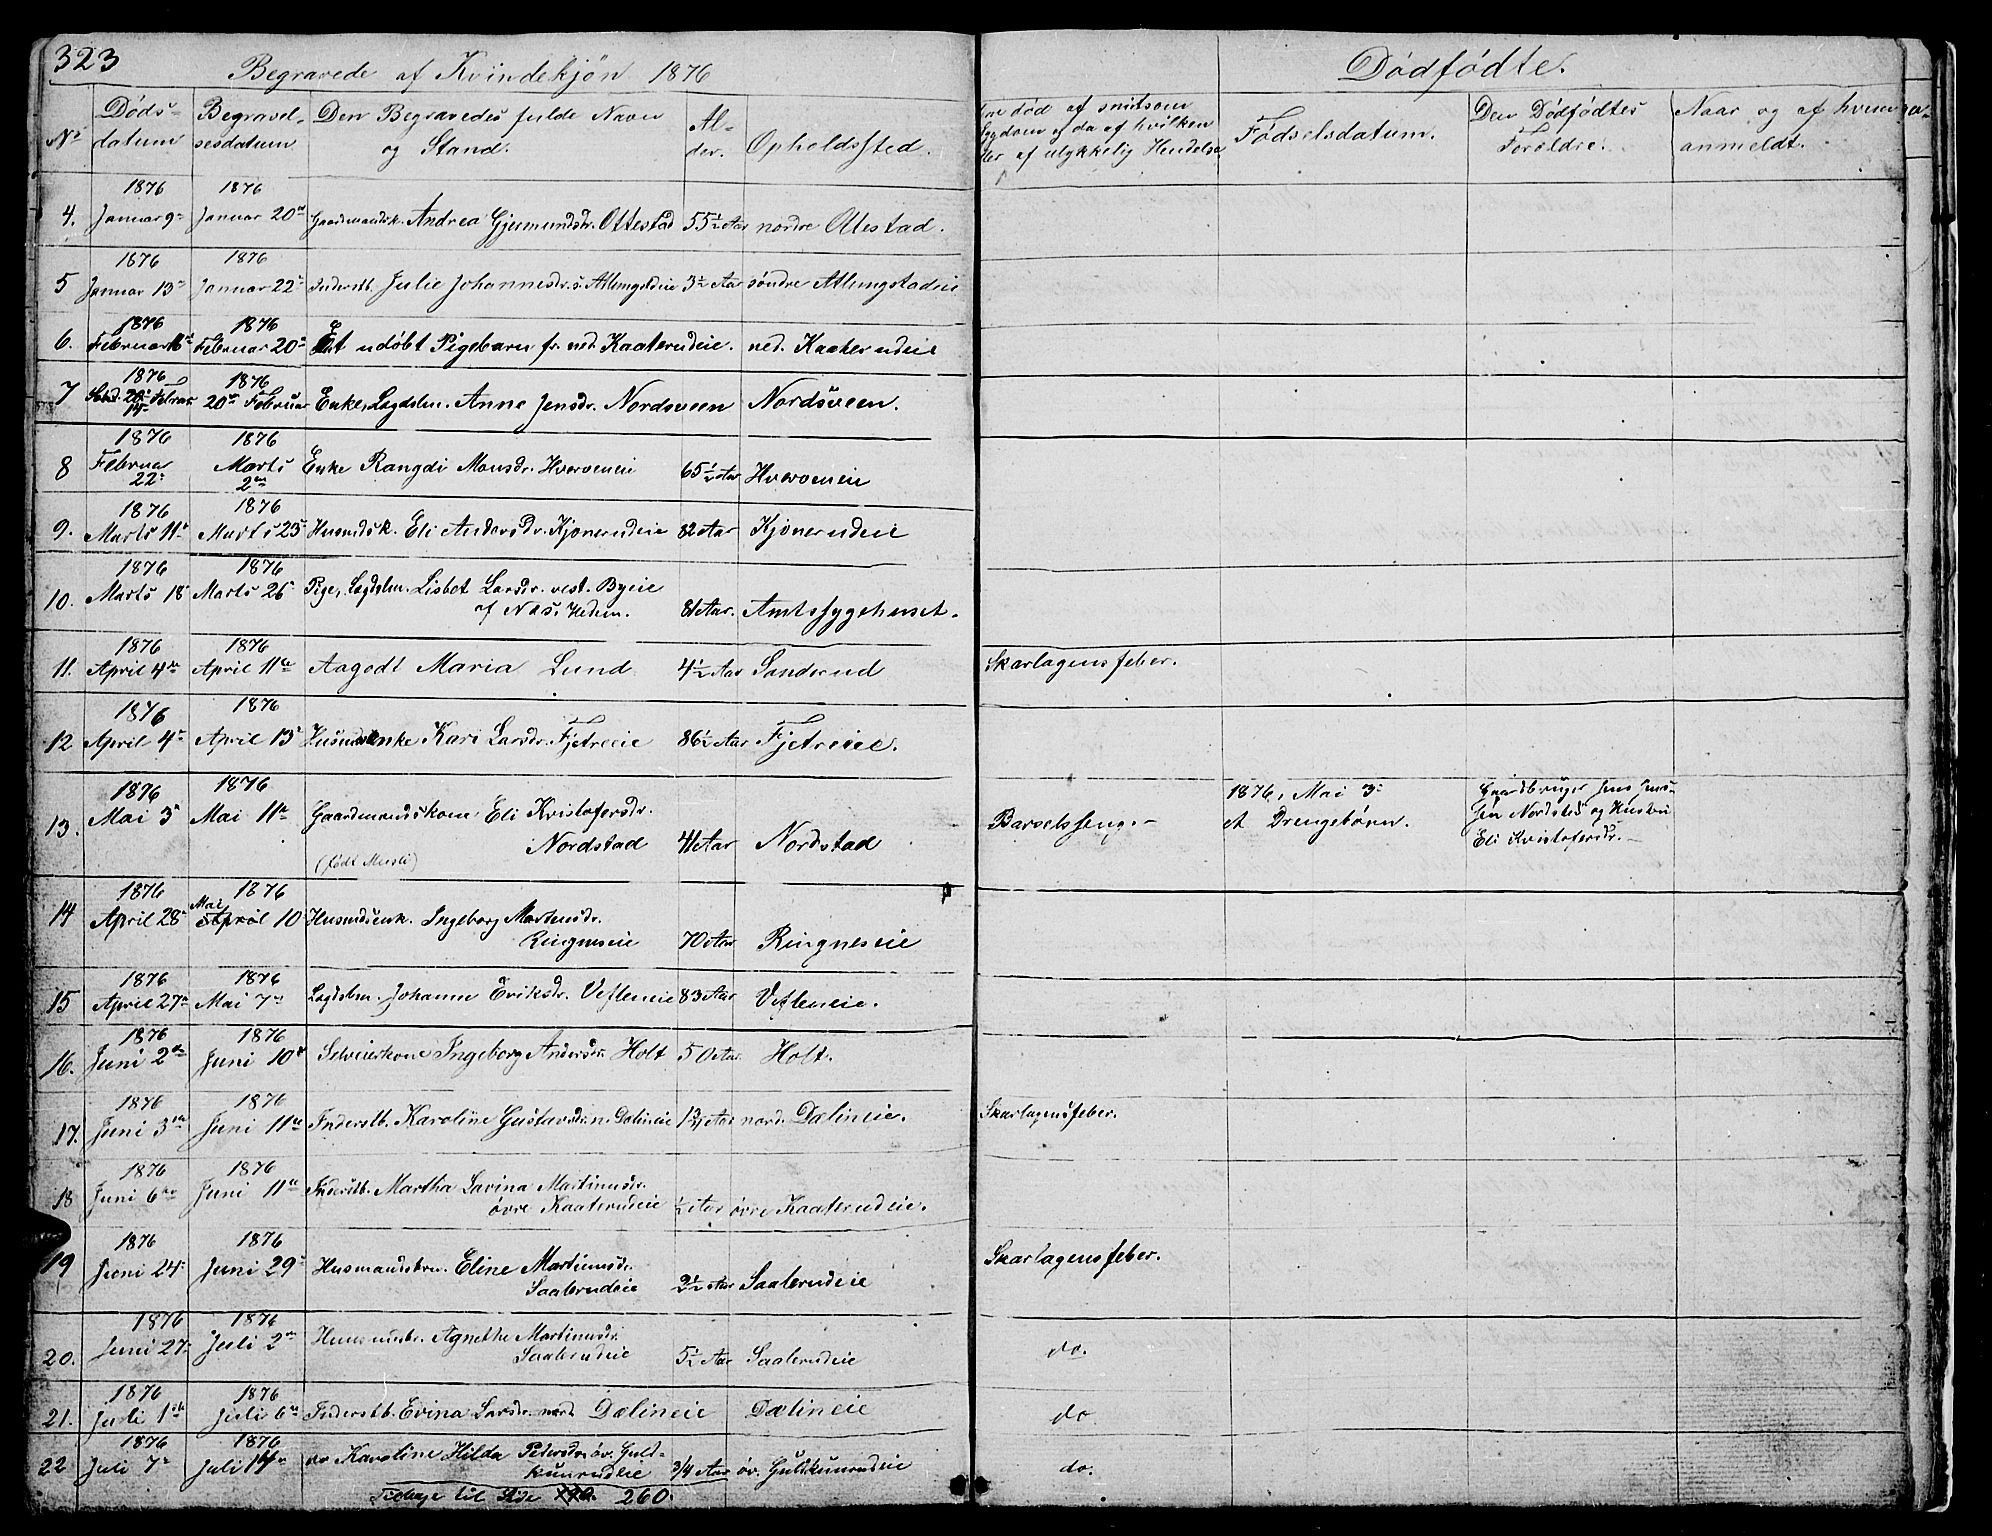 323
Begravede af Kvindekjøn 1876
Dødfødte.
No
Døds-
datum
Begravel-
sesdatum
Den Begravedes fulde Navn
og Stand.
Al-
der.
Opholdssted.
død af smitsom
Sygdom og da af hvilken
eller af ulykkelig Hendelse
Fødselsdatum.
Den Dødfødtes
Forældre.
Naar og af hvem
anmeldt.
1876 1876
4. Januar 9de Januar 20de Gaardmandsk. Andrea Gjermundsdr. Ottestad 55½ Aar nordre Ottestad.
1876 1876
5 Januar 13de Januar 22de Inderstb. Julie Johannesdr. s. Atlungstadeie 3½ Aar søndre Atlungstadeie
1876 1876
6. Februar Februar 20de Et udøbt Pigebarn fr. ned. Kaaterudeie. ned. Kaaterudeie
1876 1876
7 Februar 20de Februar Enke, Lægdslem. Anne Jensdr. Nordsveen Nordsveen.
14
1876 1876
8 Februar 22de Marts 2den Enke Rangdi Monsdr. Hverveneie 65½ Aar Hverveneie
1876 1876
9. Marts 11te Marts 23de Husmdsk. Eli Andersdr. Kjønerudeie 82 Aar Kjønerudeie
1876 1876
10. Marts 18de Marts 26de Pige, Lægdslem. Lisbet Larsdr. vest. Byeie
af Næs, Hedem. 81 Aar. Amtssygehuset.
1876 1876
11. April 4de April 11te Aagodt Maria Lund 4½ Aar Sanderud Skarlagensfeber.
1876 1876
12 April 4de April 13de Husmdsenke Kari Larsdr. Fjetreeie 86½ Aar Fjetreeie.
1876 1876
13. Mai 3de Mai 11te Gaardmandskone Eli Kristofersdr.
Nordstad 41 Aar Nordstad
(født )
Barselsseng.
1876, Mai 3de
et Drengebørn.
Gaardbruger Jens Jens-
sen Nordstad og Hustru
Eli Kristofersdr.
1876 1876
14 April 28de Mai April 10 Husmdsenk. Ingeborg Mortensdr.
Ringneseie 70 Aar Ringneseie
1876 1876
15 April 27de Mai 7de Lægdslem. Johanne Eriksdr. Vesleneie 83 Aar Vesleneie.
1876 1876
16. Juni 2den Juni 10de Selveierkone Ingeborg Andersdr. Holt 50 Aar Holt.
1876 1876
17. Juni 3die Juni 11te Inderstb. Karoline Gustavsdr. n. Dælineie Aar nord. Dælineie. Skarlagensfeber.
1876 1876
18 Juni 6te Juni 11te Inderstb. Martha Lavina Martinusdr.
øvre Kaaterudeie ½ Aar øvre Kaaterudeie.
1876 1876
19 Juni 24de Juni 29de Husmandsbrn. Eline Martinusdr.
Saalerudeie 2½ Aar Saalerudeie Skarlagensfeber.
1876 1876
20. Juni 27de Juli 2den Agnethe Martinusdr.
Saalerudeie 5½ Aar Saalerudeie do.
1876 1876
21. Juli 1ste Juli 6te Inderstb. Evina Larsdr. nord. Dælineie Dælineie do
1876 1876
22 Juli 7de Juli do Karoline Hilda Petersdr. øv. Guld-
kunrudeie 3/4 Aar øv. Guldkunrudeie do.
Tilbage til Side 260.